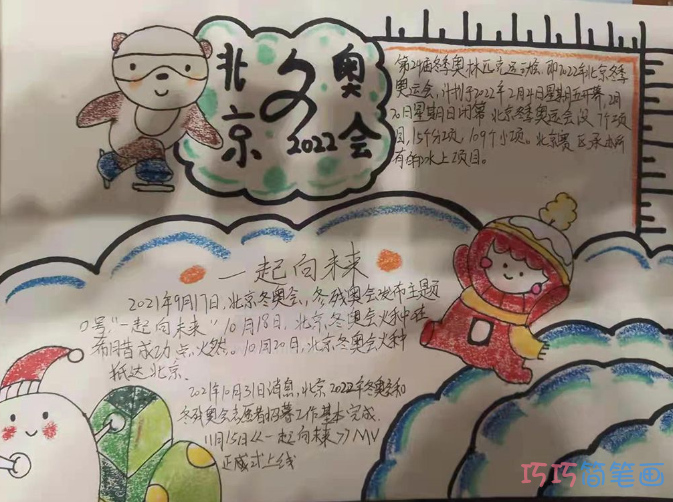 北京冬奥会
2022
第24届冬季奥林匹克运动会,即2022年北京冬季
奥运会,计划于2022年2月4日星期五开幕,2月
20日星期日闭幕。北京冬季奥运会设7个项
目,15个分项,109个小项。北京赛区承办所
有的冰上项目。
一起向未来
2021年9月17日,北京冬奥会、冬残奥会发布主题
口号"一起向未来"10月18日,北京冬奥会火种在
希腊成功点火然。10月20日,北京冬奥会火种
抵达北京.
2021年10月31日消息,北京2022年冬奥会和
冬残奥会志愿者招募工作基本完成.
11月15日《一起向未来》MV
正式上线
巧巧简笔画